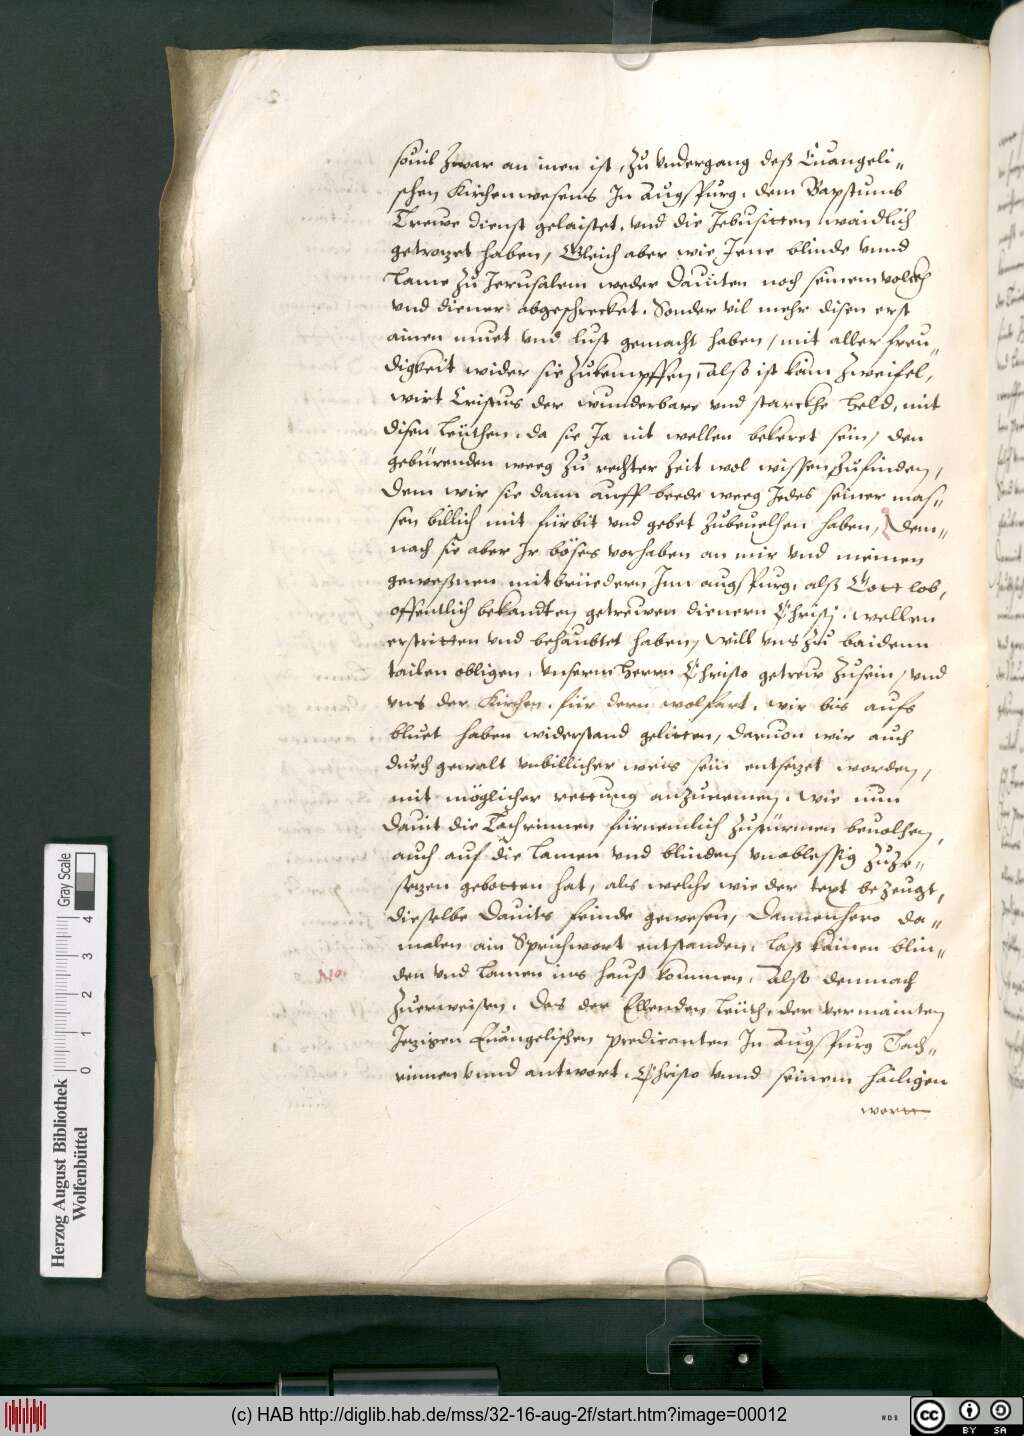 souil Zwar an inen ist, zu Vndergang deß Euangeli-
schen Kirchenwesens In Augspurg, dem Bapstumb
Trewe dienst gelaistet, vnd die Jebusitten waidlich
getrozet haben, Gleich aber wie Jene blinde vnnd
Lame zu Jerusalem weder Dauiten noch seinem volckh
vnd diener abgeschrecket, Sonder vil mehr disen erst
ainen muet vnd lust gemacht haben, mit aller freu-
digkeit wider sie zukempffen, also ist kain Zweifel,
wirt Cristus der wunderbare vnd starckhe Held, mit
disen Leüthen, da sie Ja nit wellen bekeret sein, den
gebürenden weeg zu rechter Zeit wol wissen zufinden,
Dem wir sie dann auff beede weeg Jedes seiner mas-
sen billich mit fürbit vnd gebet zubeuelhen haben, Dem-
nach sie aber Ir böses vorhaben an mir vnd meinen
geweßnen mitbrüedern Inn augspurg, alß Gott lob,
offentlich bekandten getrewen dienern Christj, wellen
erstritten vnd behaubtet haben, Will vns zu baidenn
tailen obligen, vnserm Herrn Christo getrew zusein, vnd
vns der Kirchen, für dern wolfart, wir bis aufs
bluet haben widerstand gelitten, daruon wir auch
durch gewalt vnbillicher weis sein entsezet worden,
mit möglicher rettung anzunemen, wie nun
Dauit die Tachrinnen fürnemlich zustürmen beuolhen,
auch auf die Lamen vnd blinden vnablessig zuze-
sezen gebotten hat, als welche wie der text bezeugt,
dieselbe Dauits feinde gewesen, Dannenhero da-
malen ain Sprichwort entstanden, laß kainen blin-
den vnd lamen ins hauß kommen, also demnach
Zuerweisen, Das der Ellenden Leüth, der vermainten
Jezigen Euangelischen predicanten In Augspurg Tach-
rinnen vnnd antwort, Christo vnnd seinem hailigen
wortt
Herzog August Bibliothek
Wolfenbüttel
0 1 2 3 4
Gray Scale
(c) HAB http://diglib.hab.de/mss/32-16-aug-2f/start.htm?image=00012
WDB
cc
BY SA